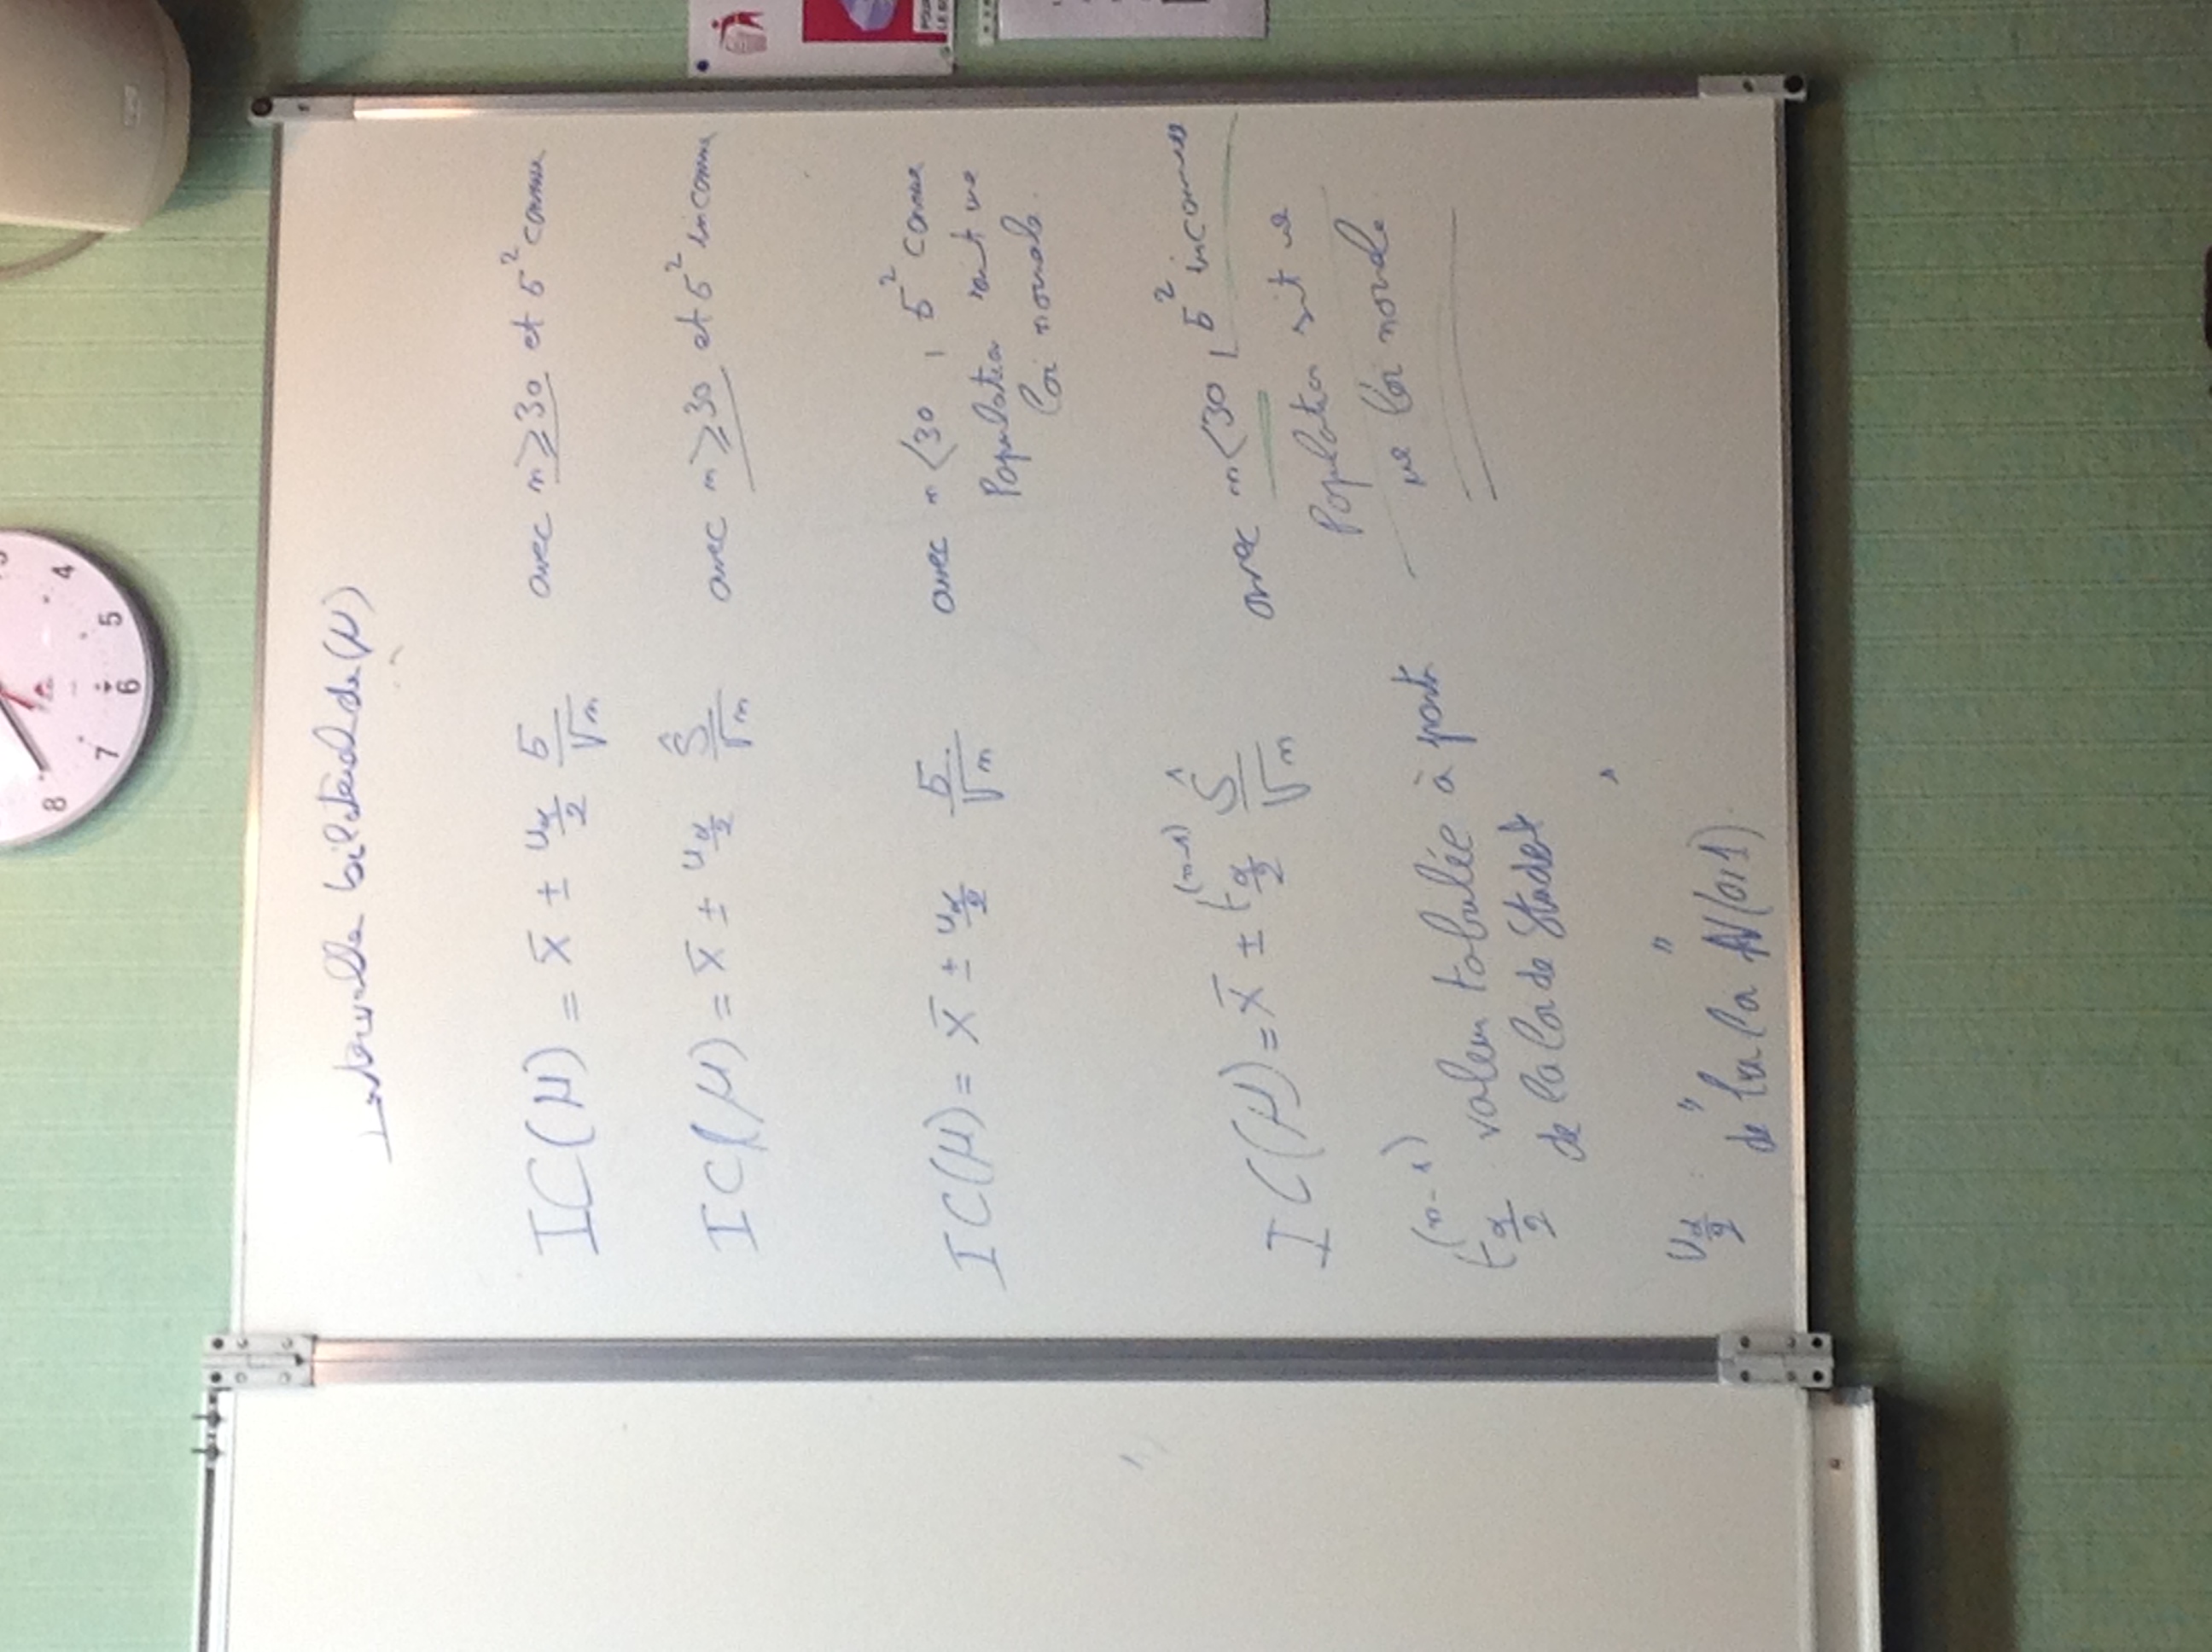 Intervalle bilatéral de (μ)
IC(μ) = x̄ ± u_{α/2} σ/√n avec n ≥ 30 et σ² connue
IC(μ) = x̄ ± u_{α/2} Ŝ/√n avec n ≥ 30 et σ² inconnue
IC(μ) = x̄ ± u_{α/2} σ/√n avec n < 30, σ² connue
Population suit une
loi normale.
IC(μ) = x̄ ± t_{α/2}^{(n-1)} Ŝ/√n avec n < 30, σ² inconnue
Population suit
une loi normale
t_{α/2}^{(n-1)} : valeur tabulée à partir
de la loi de Student
u_{α/2} : " "
de la loi N(0,1).
4
5
6
7
8